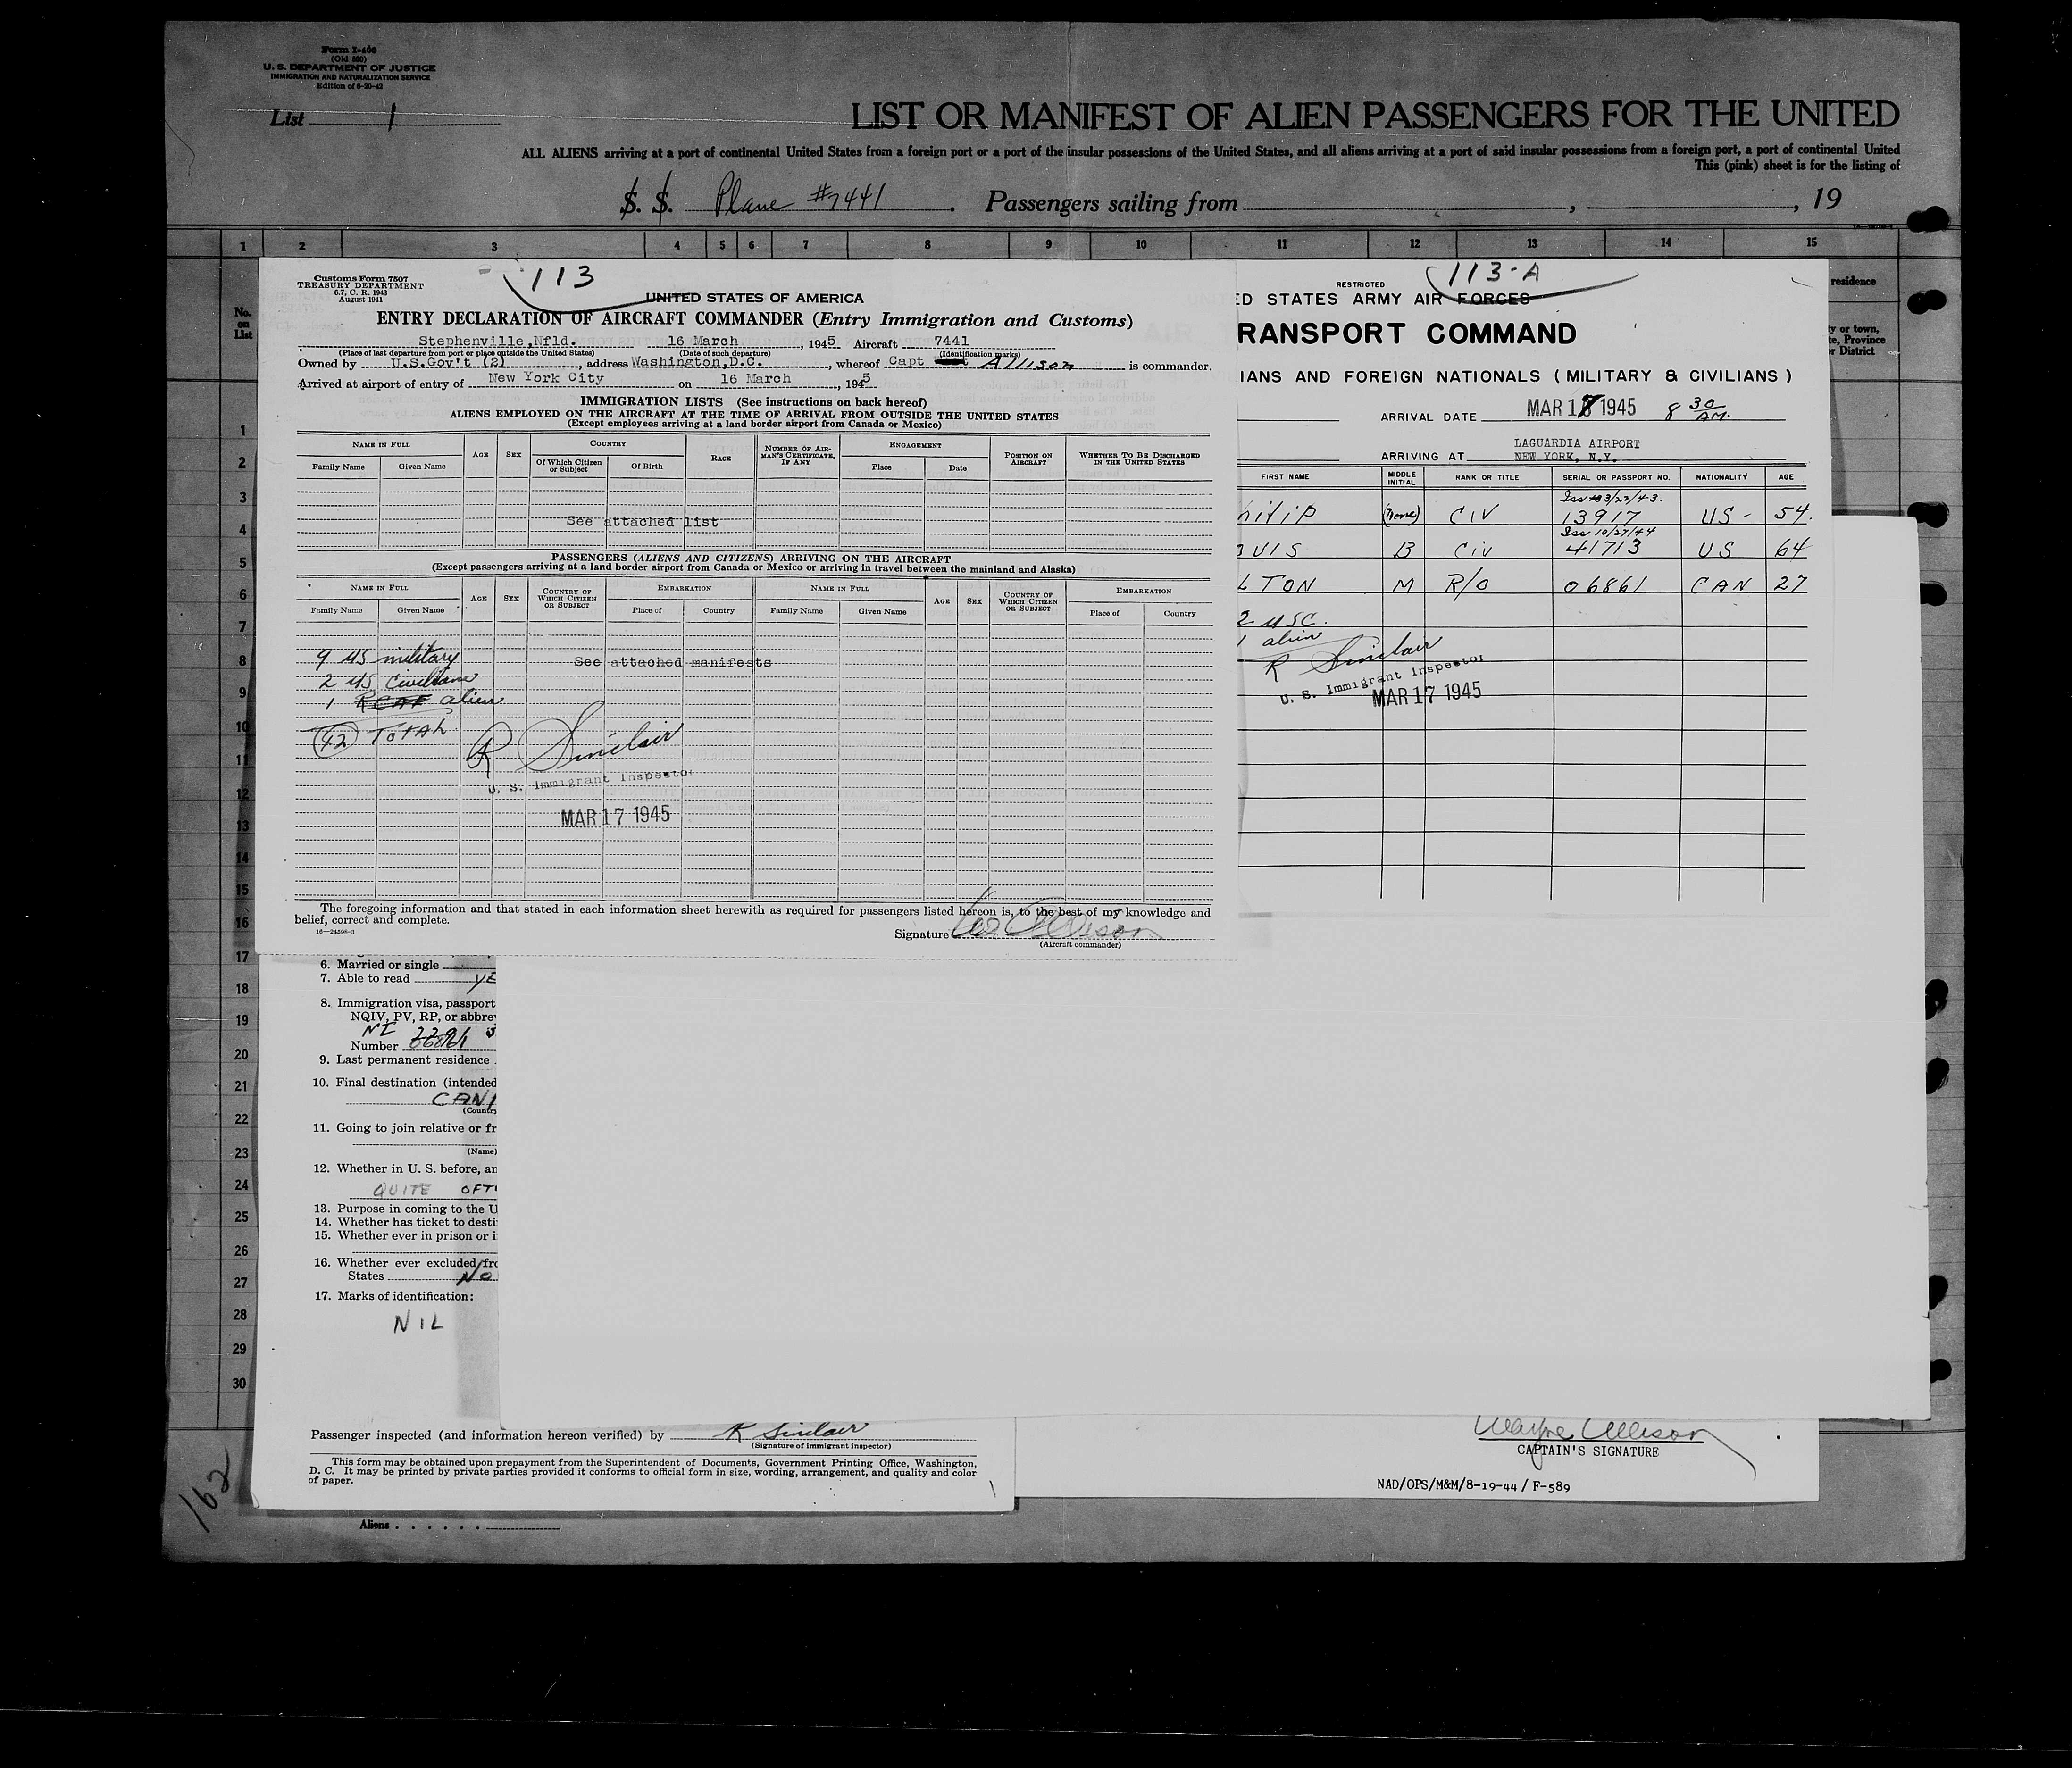 Form I-466
(Old 500)
U. S. DEPARTMENT OF JUSTICE
IMMIGRATION AND NATURALIZATION SERVICE
Edition of 6-20-42
List 1
LIST OR MANIFEST OF ALIEN PASSENGERS FOR THE UNITED
ALL ALIENS arriving at a port of continental United States from a foreign port or a port of the insular possessions of the United States, and all aliens arriving at a port of said insular possessions from a foreign port, a port of continental United
This (pink) sheet is for the listing of
S. S. Plane #7441. Passengers sailing from , , 19
1 2 3 4 5 6 7 8 9 10 11 12 13 14 15
No.
on
List
residence
y or town,
te, Province
r District
Customs Form 7507
TREASURY DEPARTMENT
6.7, C. R. 1943
August 1941
113
UNITED STATES OF AMERICA
ENTRY DECLARATION OF AIRCRAFT COMMANDER (Entry Immigration and Customs)
Stephenville,Nfld. 16 March, 1945 Aircraft 7441
(Place of last departure from port or place outside the United States) (Date of such departure) (Identification marks)
Owned by U.S.Gov't (2), address Washington,D.C., whereof Capt Allison is commander.
Arrived at airport of entry of New York City on 16 March, 1945
IMMIGRATION LISTS (See instructions on back hereof)
ALIENS EMPLOYED ON THE AIRCRAFT AT THE TIME OF ARRIVAL FROM OUTSIDE THE UNITED STATES
(Except employees arriving at a land border airport from Canada or Mexico)
NAME IN FULL AGE SEX COUNTRY RACE NUMBER OF AIRMAN'S CERTIFICATE, IF ANY ENGAGEMENT POSITION ON AIRCRAFT WHETHER TO BE DISCHARGED IN THE UNITED STATES
Family Name Given Name Of Which Citizen or Subject Of Birth Place Date
See attached list
PASSENGERS (ALIENS AND CITIZENS) ARRIVING ON THE AIRCRAFT
(Except passengers arriving at a land border airport from Canada or Mexico or arriving in travel between the mainland and Alaska)
NAME IN FULL AGE SEX COUNTRY OF WHICH CITIZEN OR SUBJECT EMBARKATION NAME IN FULL AGE SEX COUNTRY OF WHICH CITIZEN OR SUBJECT EMBARKATION
Family Name Given Name Place of Country Family Name Given Name Place of Country
9 US military
See attached manifests
2 US Civilians
1 RCAF alien
(42) TOTAL
R Sinclair
U. S. Immigrant Inspector
MAR 17 1945
The foregoing information and that stated in each information sheet herewith as required for passengers listed hereon is, to the best of my knowledge and
belief, correct and complete.
16—24598-3
Signature
(Aircraft commander)
RESTRICTED
113-A
ED STATES ARMY AIR FORCES
RANSPORT COMMAND
IANS AND FOREIGN NATIONALS (MILITARY & CIVILIANS)
ARRIVAL DATE MAR 17 1945 8 30 AM.
ARRIVING AT LAGUARDIA AIRPORT
NEW YORK, N.Y.
FIRST NAME MIDDLE INITIAL RANK OR TITLE SERIAL OR PASSPORT NO. NATIONALITY AGE
Iss 3/22/43.
hilip (none) CIV 13917 US - 54.
Iss 10/27/44
OUIS B Civ 41713 US 64
LTON M R/O 06861 CAN 27
2 USC.
1 alien
R Sinclair
U. S. Immigrant Inspector
MAR 17 1945
1
2
3
4
5
6
7
8
9
10
11
12
13
14
15
16
17
18
19
20
21
22
23
24
25
26
27
28
29
30
6. Married or single
7. Able to read YE
8. Immigration visa, passport
NQIV, PV, RP, or abbre
NI
Number
9. Last permanent residence
10. Final destination (intended
CAN
(Country
11. Going to join relative or fr
(Name)
12. Whether in U. S. before, an
QUITE OFT
13. Purpose in coming to the U
14. Whether has ticket to desti
15. Whether ever in prison or i
16. Whether ever excluded fro
States No
17. Marks of identification:
NIL
Passenger inspected (and information hereon verified) by R Sinclair
(Signature of immigrant inspector)
This form may be obtained upon prepayment from the Superintendent of Documents, Government Printing Office, Washington,
D. C. It may be printed by private parties provided it conforms to official form in size, wording, arrangement, and quality and color
of paper.
Wayne Allison
CAPTAIN'S SIGNATURE
NAD/OPS/M&M/8-19-44 / F-589
162
Aliens